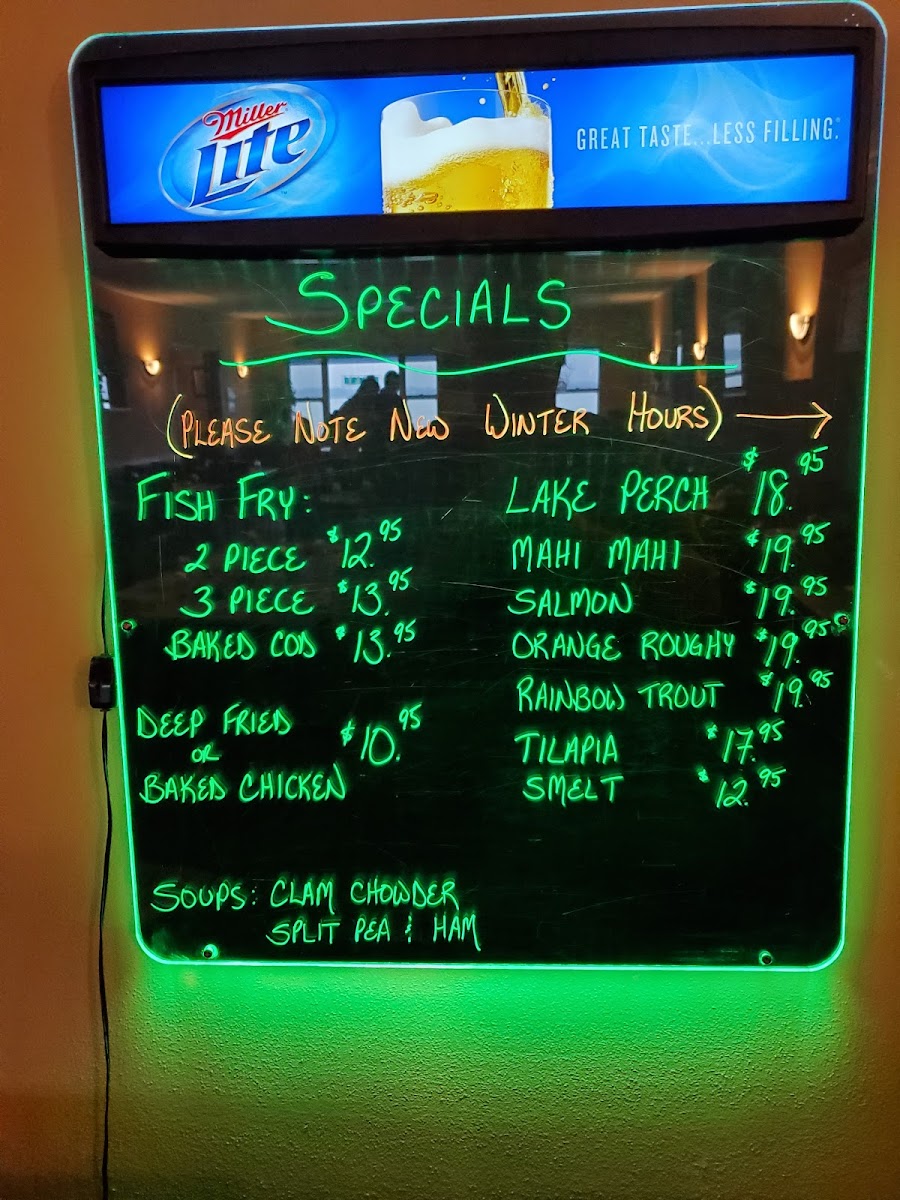 Miller
Lite
GREAT TASTE...LESS FILLING.
SPECIALS
(PLEASE NOTE NEW WINTER HOURS) →
FISH FRY:
2 PIECE $12.95
3 PIECE $13.95
BAKED COD $13.95
DEEP FRIED
OR
$10.95
BAKED CHICKEN
LAKE PERCH $18.95
MAHI MAHI $19.95
SALMON $19.95
ORANGE ROUGHY $19.95
RAINBOW TROUT $19.95
TILAPIA $17.95
SMELT $12.95
SOUPS: CLAM CHOWDER
SPLIT PEA & HAM